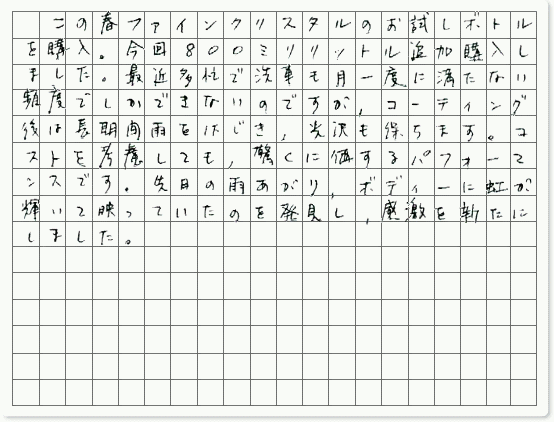 この春ファインクリスタルのお試しボトル
を購入。今回800ミリリットル追加購入し
ました。最近多忙で洗車も月一度に満たない
頻度でしかできないのですが、コーティング
後は長期間雨をはじき、光沢も保ちます。コ
ストを考慮しても、驚くに値するパフォーマ
ンスです。先日の雨あがり、ボディーに虹が
輝いて映っていたのを発見し、感激を新たに
しました。